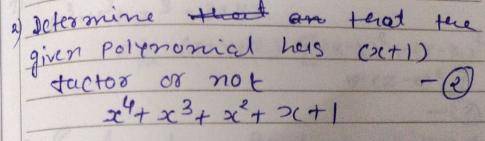 2) Determine that the
given polynomial has (x+1)
factor or not - ②
x⁴ + x³ + x² + x + 1